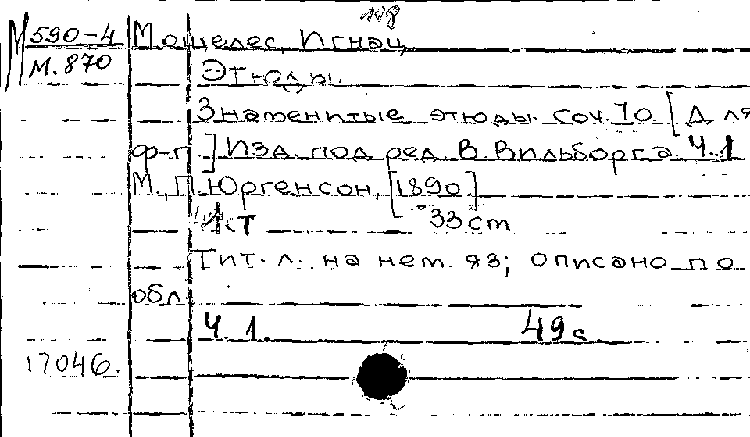 М 590-4 Мошелес, Игнац
М. 870 Этюды.
Знаменитые этюды. соч. 70 [Для
ф-п.] Изд. под ред. В. Вильборга. Ч. 1
М., П. Юргенсон, [1890]
т 33 cm
Тит. л. на нем. яз; описано по
обл
Ч 1. 49 с
17046.